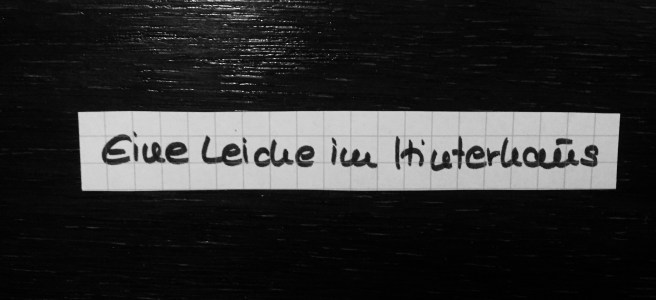 Eine Leiche im Hinterhaus